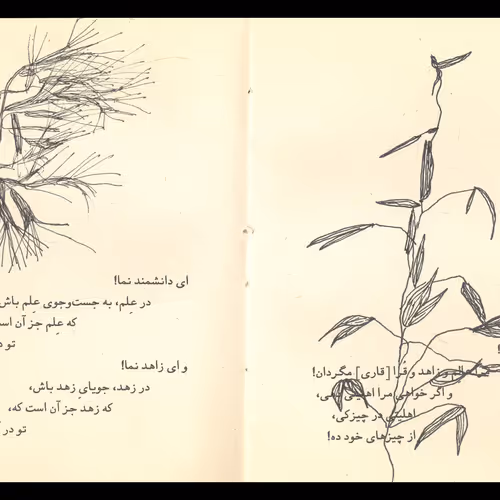 عالم و زاهد و قُرا [قاری] مگردان!
و اگر خواهی مرا اهلیتی دهی،
اهلیتی در چیزکی،
از چیزهای خود ده!
ای دانشمند نما!
در عِلم، به جست‌وجوی عِلم باش
که عِلم جز آن
تو
و ای زاهد نما!
در زهد، جویایِ زهد باش،
که زهد جز آن است که،
تو در